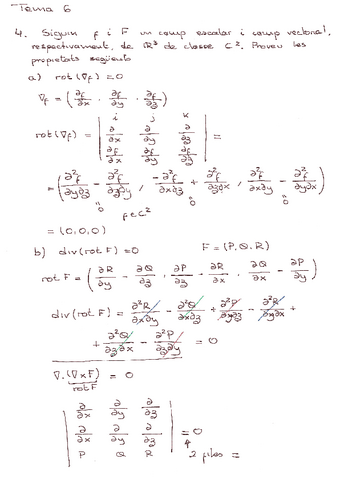 Tema 6
4. Siguin f i F un camp escalar i camp vectorial,
respectivament, de ℝ³ de classe C². Proveu les
propietats següents
a) rot(∇f) = 0
∇f = (∂f/∂x, ∂f/∂y, ∂f/∂z)
rot(∇f) = | i j k |
| ∂/∂x ∂/∂y ∂/∂z | =
| ∂f/∂x ∂f/∂y ∂f/∂z |
= (∂²f/∂y∂z - ∂²f/∂z∂y, -∂²f/∂x∂z + ∂²f/∂z∂x, ∂²f/∂x∂y - ∂²f/∂y∂x)
"0 f∈C² "0 "0
= (0,0,0)
b) div(rot F) = 0 F = (P, Q, R)
rot F = (∂R/∂y - ∂Q/∂z, ∂P/∂z - ∂R/∂x, ∂Q/∂x - ∂P/∂y)
div(rot F) = ∂²R/∂x∂y - ∂²Q/∂x∂z + ∂²P/∂y∂z - ∂²R/∂y∂x +
+ ∂²Q/∂z∂x - ∂²P/∂z∂y = 0
∇·(∇×F) = 0
rot F
| ∂/∂x ∂/∂y ∂/∂z |
| ∂/∂x ∂/∂y ∂/∂z | = 0
| P Q R | 2 files =